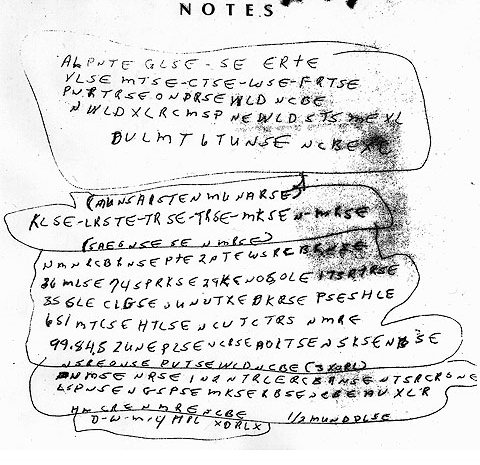 NOTES
ALPNTE GLSE-SE ERTE
VLSE MTSE-CTSE-WSE-FRTSE
PNRTRSEONDRSEWLD NCBE
NWLDXLRCMSP NEWLDSTS MEXL
DULMT6TUNSE NCBEXC
(MUNSARSTENMUNARSE)
KLSE-LRSTE-TRSE-TRSE-MKSEN-MRSE
(SAEGNSESE NMRSE)
NMNRCBRNSEPTE2PTEWSRCBRNSE
36MLSE 74SPRKSE29KENOSOLE 173RTRSE
35GLE CLGSEOUNUTREDKRSE PSESHLE
651MTCSE HTLSENCUTCTRS NMRE
99.84.S2UNEPLSENCRSEAOLTSENSKSENBSE
NSREONSE PUTSEWLDNCBE(3XORL)
NMSE NRSE INZNTRLERCBRNSENTSRCRBNE
LSPNSENGSPSEMKSERBSENCBEAUXLR
HMCRENMRENCBE 1/2MUNDDLSE
D-W-M-Y HPL XDRLX